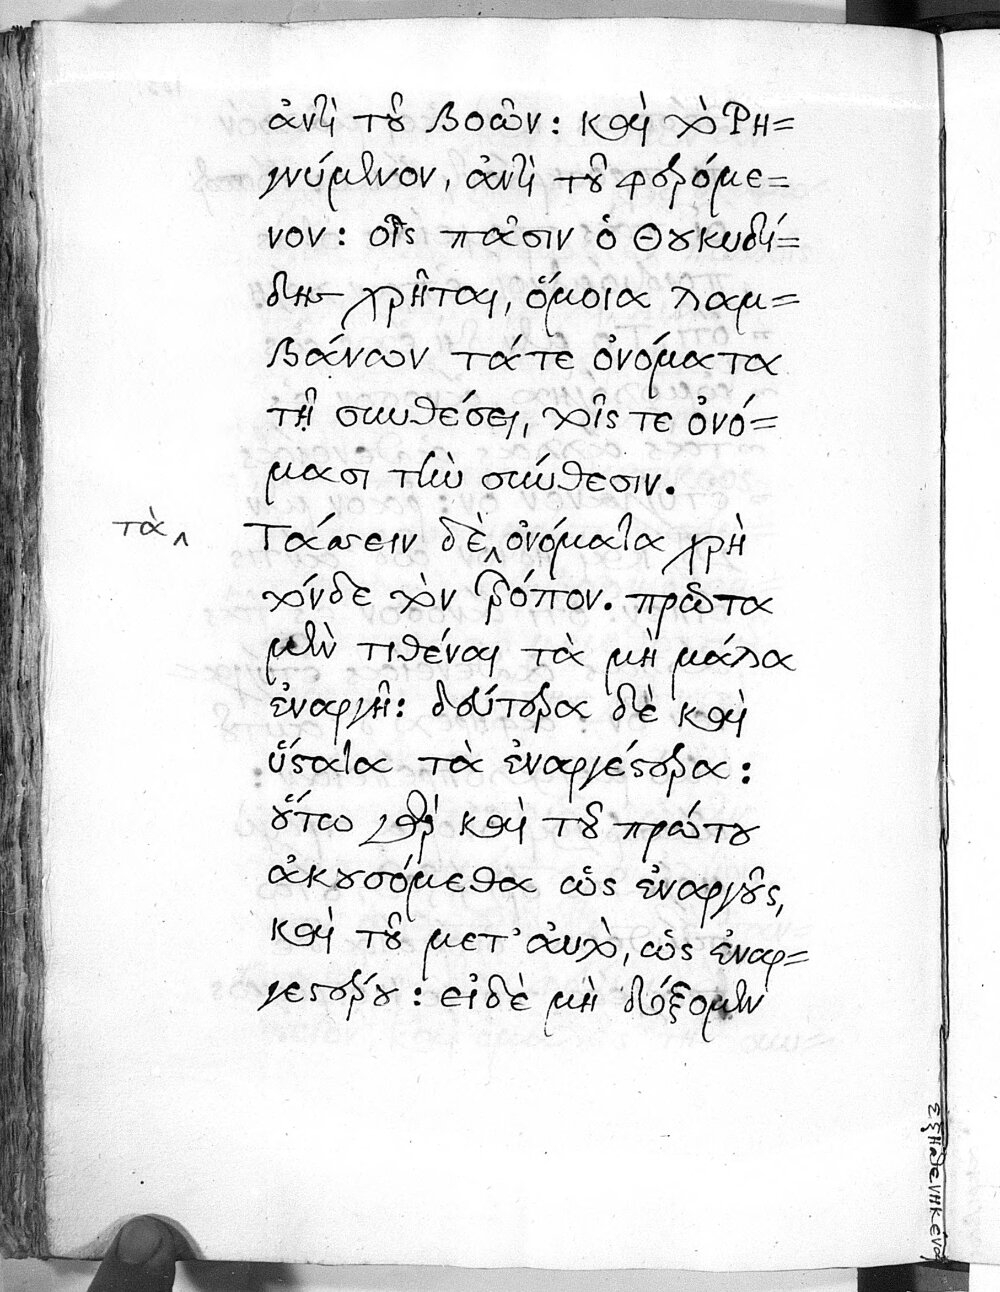 ἀντὶ τοῦ βοῶν: καὶ τὸ ῥη=
γνύμενον, ἀντὶ τοῦ φερόμε=
νον: οἷς πᾶσιν ὁ Θουκυδί=
δης χρῆται, ὅμοια λαμ=
βάνων τά τε ὀνόματα
τῇ συνθέσει, τοῖς τε ὀνό=
μασι τὴν σύνθεσιν.
τὰ
Τάττειν δὲ ὀνόματα χρὴ
τόνδε τὸν τρόπον. πρῶτα
μὲν τιθέναι τὰ μὴ μάλα
ἐναργῆ: δεύτερα δὲ καὶ
ὕστατα τὰ ἐναργέστερα:
οὕτω γὰρ καὶ τοῦ πρώτου
ἀκουσόμεθα ὡς ἐναργοῦς,
καὶ τοῦ μετ' αὐτὸ, ὡς ἐναρ=
γεστέρου: εἰ δὲ μὴ δόξομεν